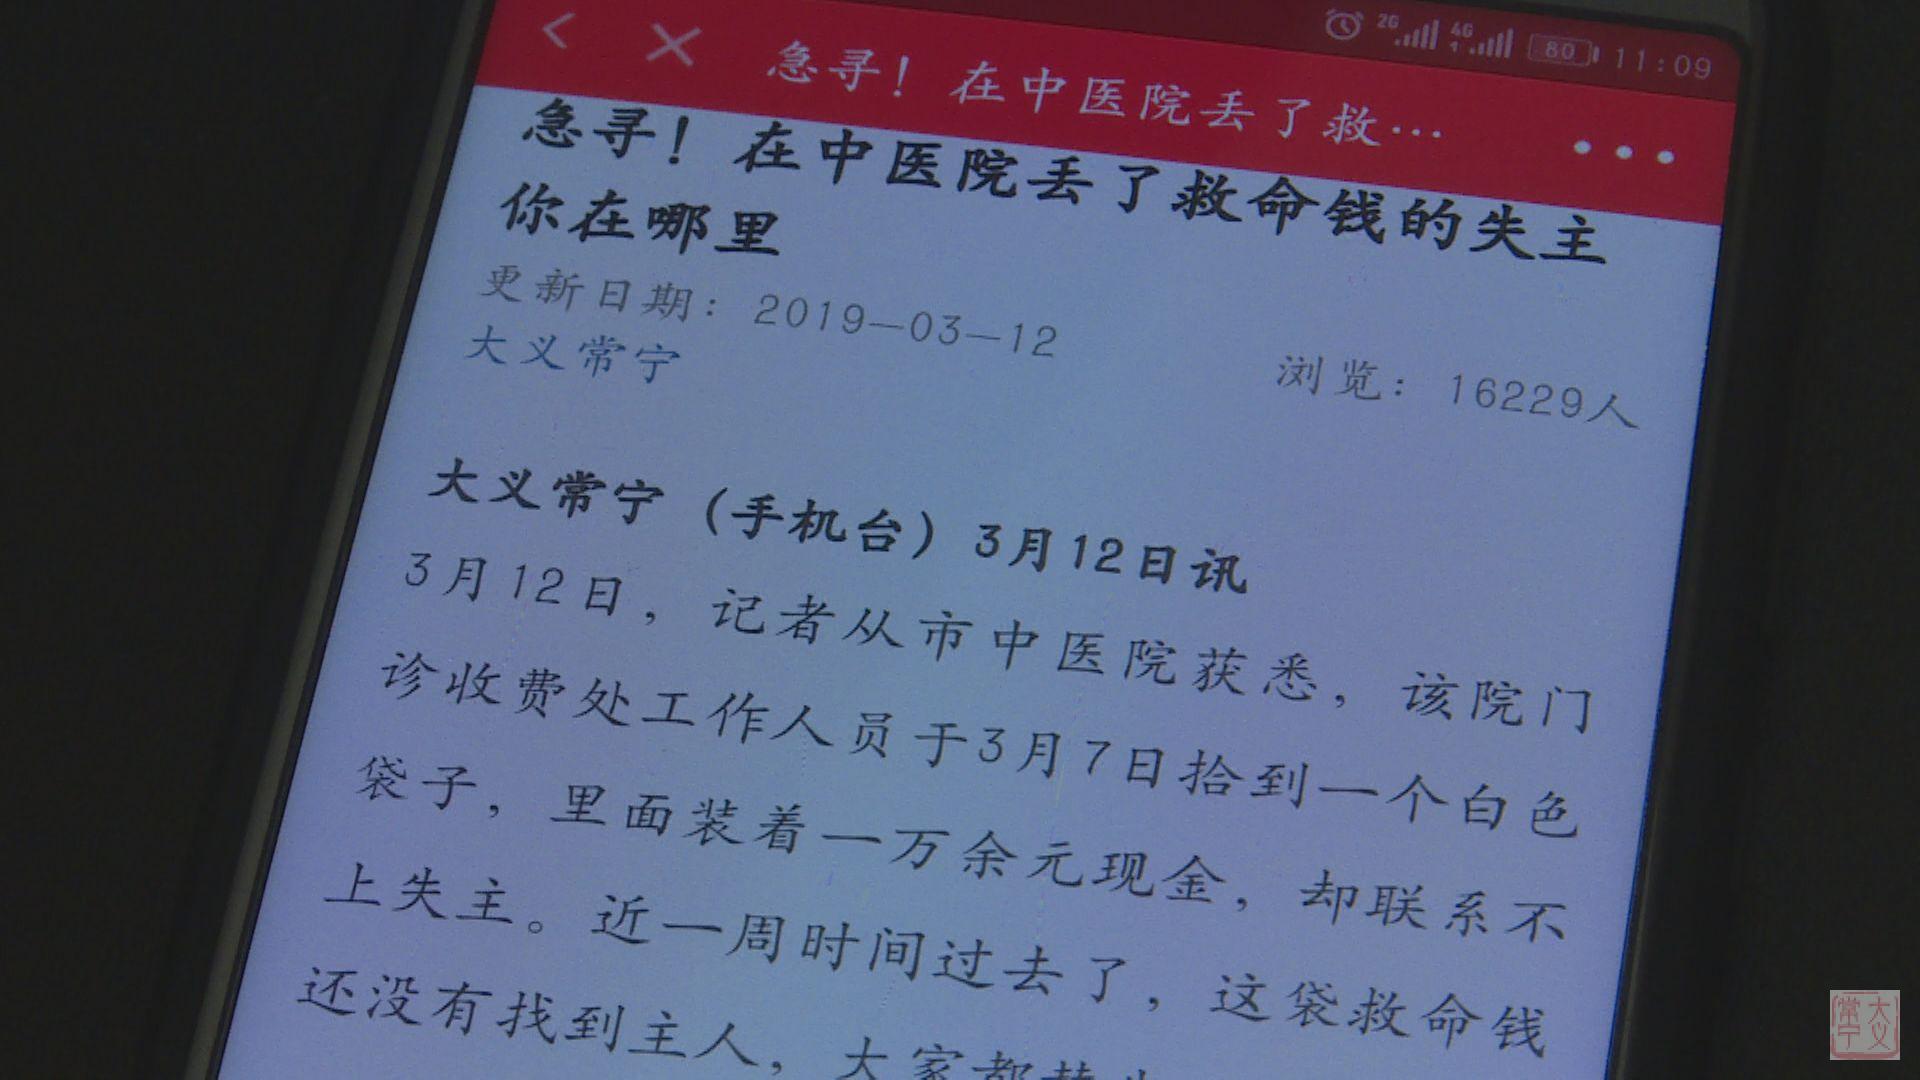 2G 4G 1 80 11:09
急寻！在中医院丢了救…
急寻！在中医院丢了救命钱的失主
你在哪里
更新日期：2019-03-12
大义常宁
浏览：16229人
大义常宁（手机台）3月12日讯
3月12日，记者从市中医院获悉，该院门
诊收费处工作人员于3月7日拾到一个白色
袋子，里面装着一万余元现金，却联系不
上失主。近一周时间过去了，这袋救命钱
还没有找到主人，大家都替
大义常宁